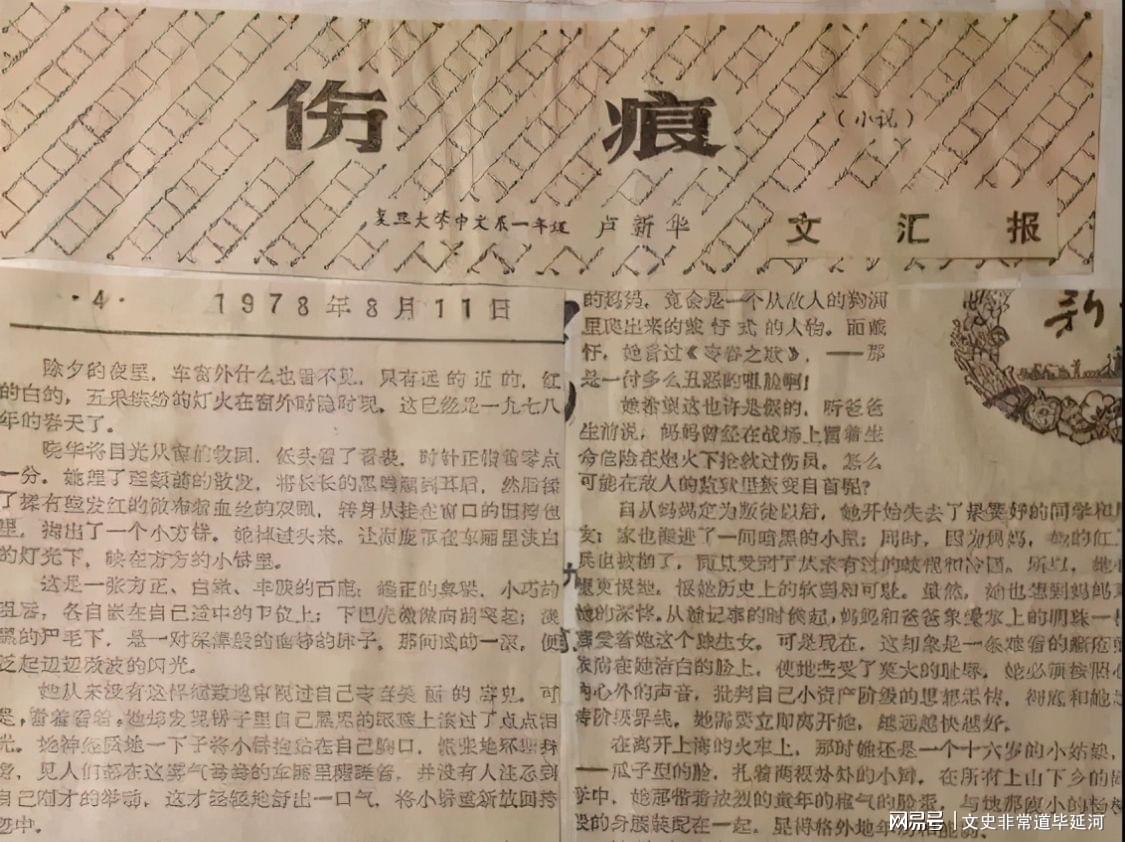 伤痕
(小说)
复旦大学中文系一年级 卢新华
文汇报
·4· 1978年8月11日
除夕的夜里，车窗外什么也看不见，只有远的近的，红
的白的，五采缤纷的灯火在窗外时隐时现，这已经是一九七八
年的春天了。
晓华将目光从窗前收回，低头看了看表，时针正指着零点
一分。她理了理额前的散发，将长长的黑辫顺到耳后，然后揉
了揉有些发红的微布着血丝的双眼，转身从挂在窗口的旧挎包
里，掏出了一个小方镜。她掉过头来，让面庞罩在车厢里淡白
的灯光下，映在方方的小镜里。
这是一张方正、白嫩、丰腴的面庞：端正的鼻梁，小巧的
各自嵌在自己适中的部位上；下巴尖微微向前突起；
眉毛下，是一对深潭般的幽静的眸子。那间或的一滚，便
泛起辺辺微波的闪光。
她从来没有这样细致地审视过自己青春美丽的容貌。可
是，看着看着，她却发现镜子里自己黑黑的眼珠上滚过了点点泪
光。她神经质地一下子将小镜抱贴在自己胸口，慌张地环视身
旁，见人们都在这雾气蒙蒙的车厢里酣睡着，并没有人注意到
自己刚才的举动，这才轻轻地舒出一口气，将小镜重新放回挎
包中。
的妈妈，竟会是一个从敌人的狗洞
里爬出来的戴愉式的人物。而戴
愉，她看过《青春之歌》，——那
是一付多么丑恶的嘴脸啊！
她希望这也许是假的，听爸爸
生前说，妈妈曾经在战场上冒着生
命危险在炮火下抢救过伤员，怎么
可能在敌人的监狱里叛变自首呢？
自从妈妈定为叛徒以后，她开始失去了最要好的同学和
友；家也搬进了一间暗黑的小屋；同时，因为妈妈，她的红
兵也被撤了，而且受到了从来有过的歧视和冷遇。所以，她
更恨她，恨她历史上的软弱和可耻。虽然，她也想到妈妈
她的深情。从她记事的时候起，妈妈和爸爸象爱掌上的明珠一
喜爱着她这个独生女。可是现在，这却象是一条难看的癞疮
依附在她洁白的脸上，使她蒙受了莫大的耻辱。她必须按照心
内心外的声音，批判自己小资产阶级的思想感情，彻底和她
清阶级界线。她需要立即离开她，越远越快越好。
在离开上海的火车上，那时她还是一个十六岁的小姑娘，
——瓜子型的脸，扎着两根短短的小辫。在所有上山下乡的
学中，她那带着浓烈的童年的稚气的脸蛋，与她那瘦小的
般的身腰装配在一起，显得格外地年幼和
网易号 | 文史非常道毕延河